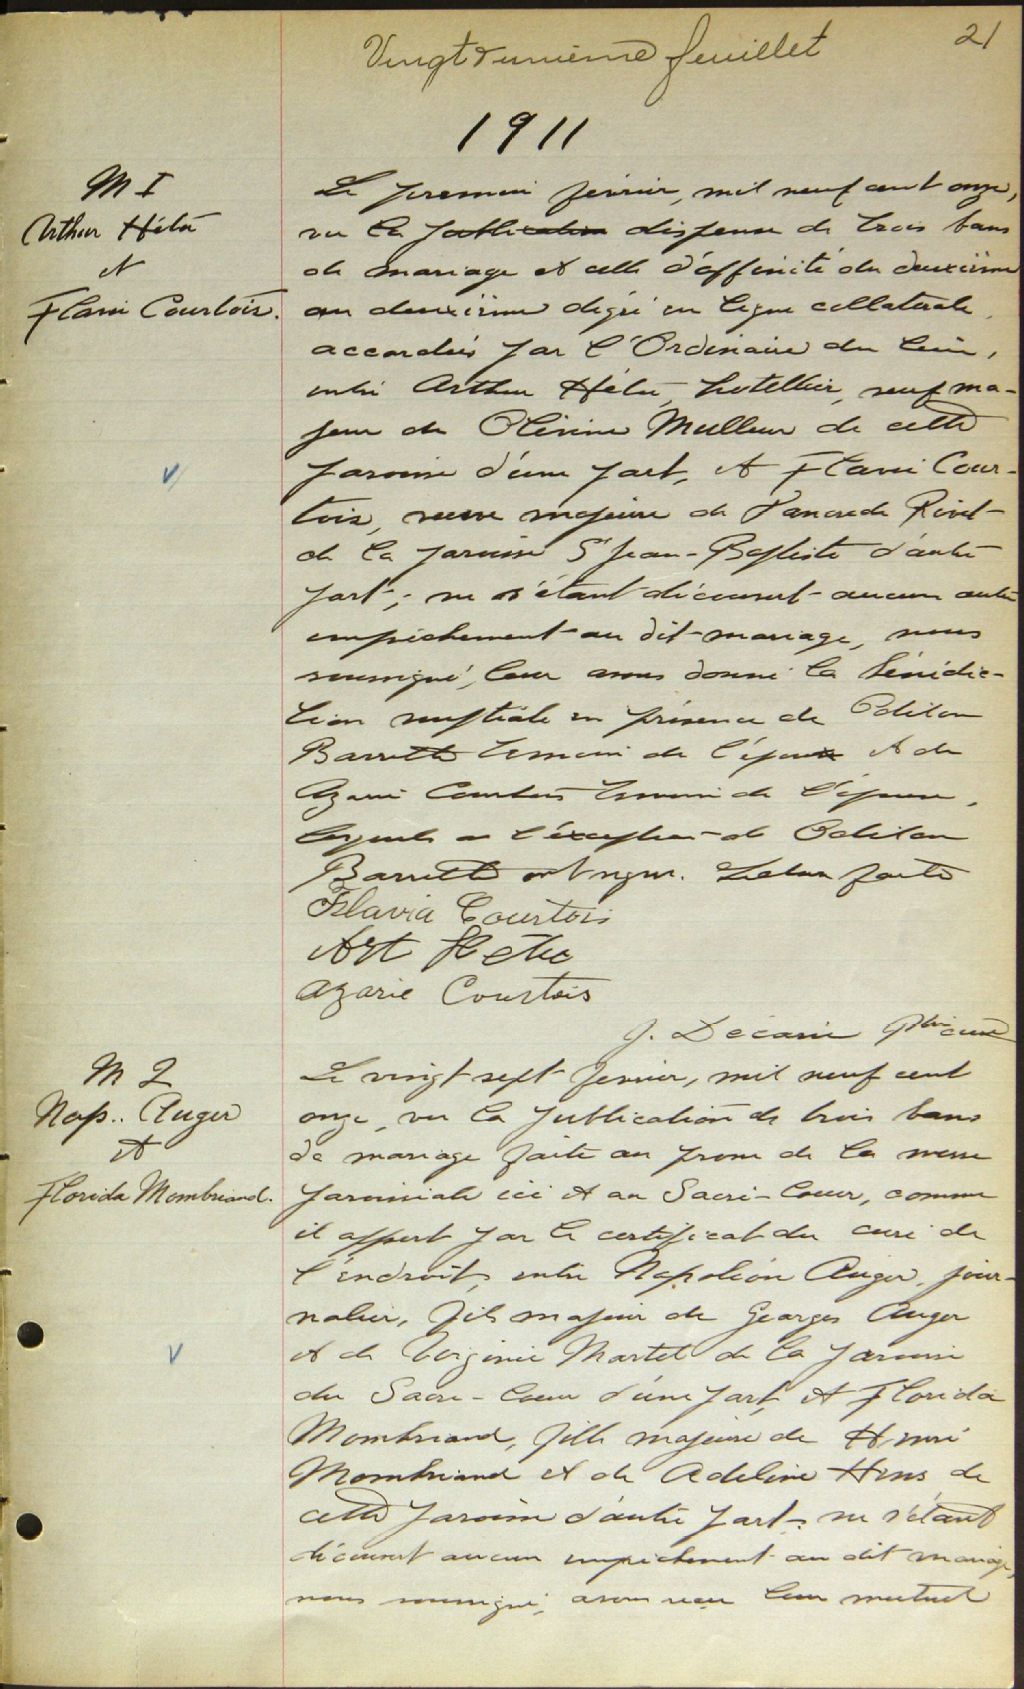 Vingt & unième feuillet
21
1911
M 1
Arthur Hétu
et
Flavie Courtois.
Le premier février, mil neuf cent onze,
vu la publication dispense de trois bans
de mariage et celle d'affinité du deuxième
au deuxième degré en ligne collatérale,
accordées par l'Ordinaire du lieu,
entre Arthur Hétu, hotellier, veuf ma-
jeur de Olivine Mulleur de cette
paroisse d'une part, et Flavie Cour-
tois, veuve majeure de Tancrede Rivet
de la paroisse St Jean-Baptiste d'autre
part; ne s'étant découvert aucun autre
empêchement au dit mariage, nous
soussigné, leur avons donné la bénédic-
tion nuptiale en présence de Odilon
Barrette témoin de l'époux et de
Azarie Courtois témoin de l'épouse,
lesquels à l'exception de Odilon
Barrette ont signé. Lecture faite
Flavia Courtois
Art Hétu
Azarie Courtois
J. Décarie Ptre curé
M 2
Nap.. Auger
et
Florida Mombriand.
Le vingt sept février, mil neuf cent
onze, vu la publication de trois bans
de mariage faite au prone de la messe
paroissiale ici et au Sacré-Coeur, comme
il appert par le certificat du curé de
l'endroit, entre Napoléon Auger, jour-
nalier, fils majeur de Georges Auger
et de Virginie Martel de la paroisse
du Sacré-Coeur d'une part, et Florida
Mombriand, fille majeure de Henri
Mombriand et de Adeline Hins, de
cette paroisse d'autre part; ne s'étant
découvert aucun empêchement au dit mariage,
nous soussigné, avons reçu leur mutuel